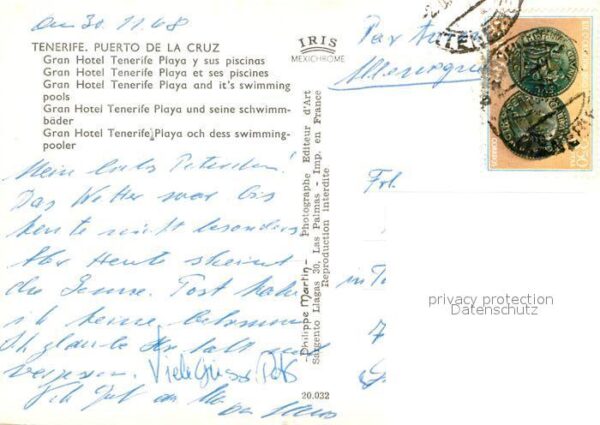 Am 30.11.68
TENERIFE. PUERTO DE LA CRUZ
Gran Hotel Tenerife Playa y sus piscinas
Gran Hotel Tenerife Playa et ses piscines
Gran Hotel Tenerife Playa and it's swimming
pools
Gran Hotel Tenerife Playa und seine schwimm-
bäder
Gran Hotel Tenerife Playa och dess swimming-
pooler
IRIS
MEXICHROME
Mein liebes
Das Wetter war bis
heute nicht besonders
Aber Heute scheint
die Sonne. Post habe
ich keine bekommen
Ich glaube Ihr habt mich
vergessen. Viele Grüsse
Philippe Martin - Photographe Editeur d'Art
Sargento Llagas 30, Las Palmas - Imp. en France
Reproduction interdite
20.032
Par
Frl.
in
privacy protection
Datenschutz